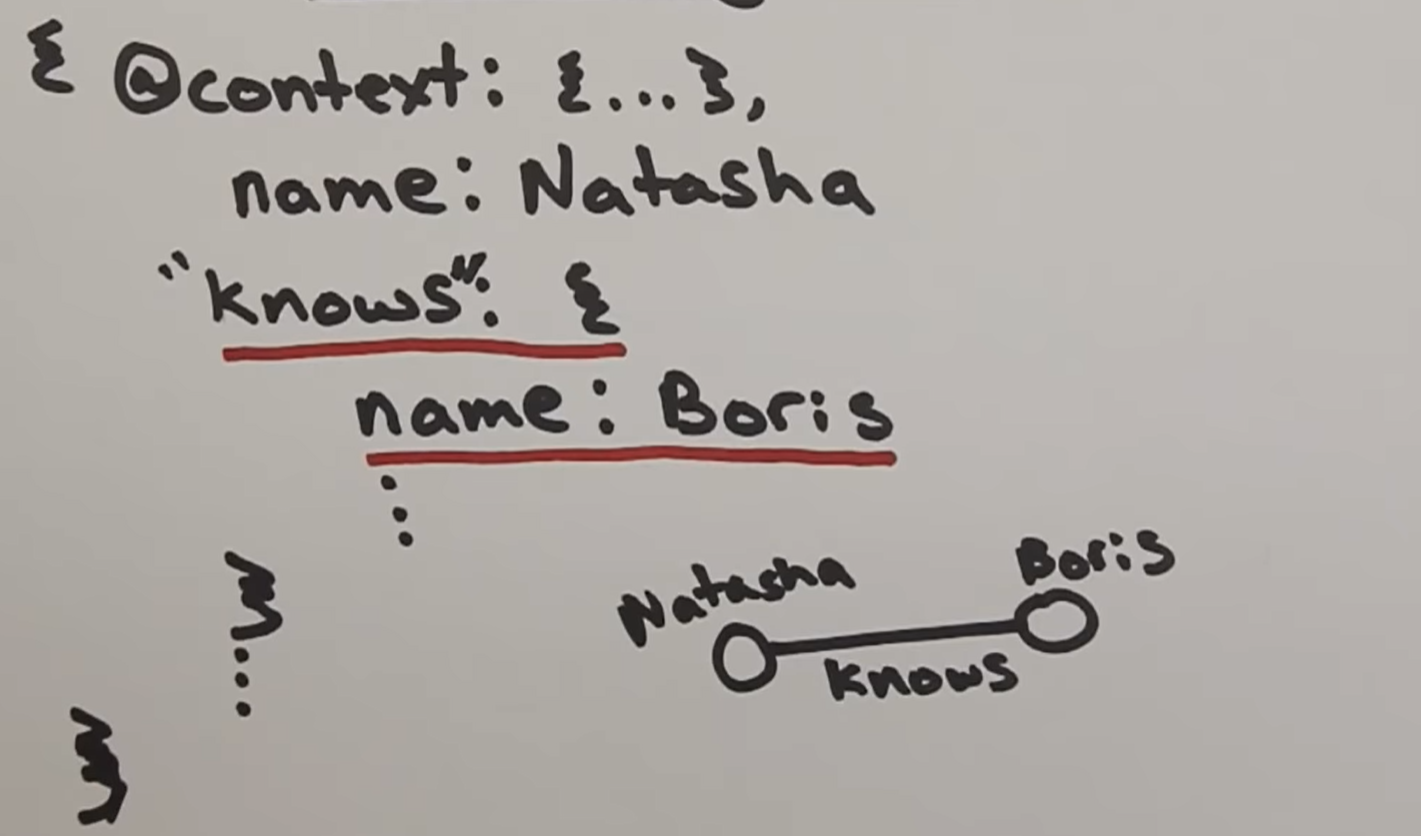 { @context: {...},
name: Natasha
"knows": {
name: Boris
⋮
}
⋮
}
Natasha
Boris
knows